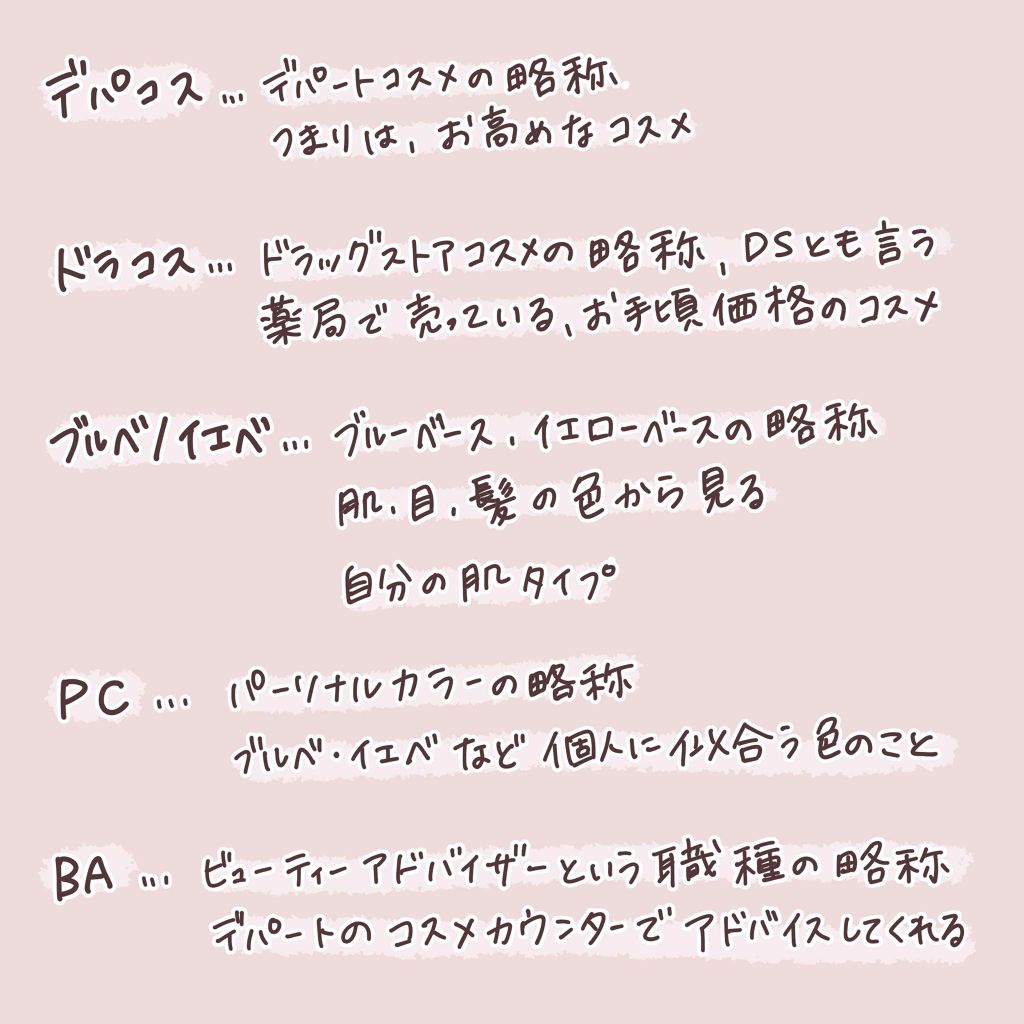 デパコス… デパートコスメの略称
つまりは、お高めなコスメ
ドラコス… ドラッグストアコスメの略称、DSとも言う
薬局で売っている、お手頃価格のコスメ
ブルベ/イエベ… ブルーベース、イエローベースの略称
肌、目、髪の色から見る
自分の肌タイプ
PC… パーソナルカラーの略称
ブルベ・イエベなど個人に似合う色のこと
BA… ビューティーアドバイザーという職種の略称
デパートのコスメカウンターでアドバイスしてくれる